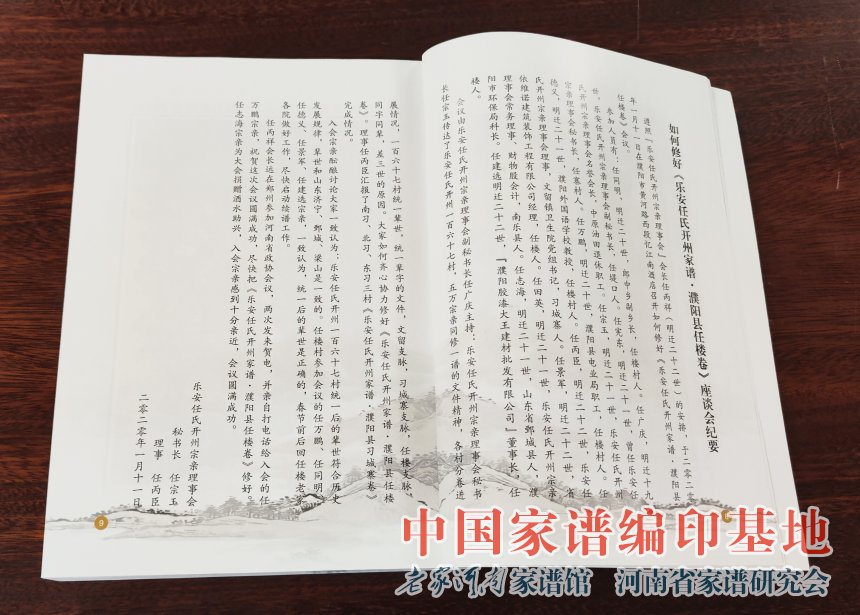 如何修好《乐安任氏开州家谱·濮阳县任楼卷》座谈会纪要
遵照「乐安任氏开州宗亲理事会」会长任丙祥（明迁二十二世）的安排，于二零二零
年一月十一日在濮阳市黄河路西段忆江南酒店召开如何修好《乐安任氏开州家谱·濮阳县
任楼卷》会议。
参加人员有：任同明，明迁二十世，郎中乡副乡长，任楼村人。任广庆，明迁十九
世，乐安任氏开州宗亲理事会副秘书长，任堤口人。任宪东，明迁二十一世，曾任乐安任
氏开州宗亲理事会名誉会长，中原油田退休职工。任宗玉，明迁二十一世，乐安任氏开州
宗亲理事会秘书长，任寨村人。任万鹏，明迁二十世，濮阳县电业局职工，任楼村人。任
德义，明迁二十一世，濮阳外国语学校教授，任楼村人。任丙臣，明迁二十二世，乐安任
氏开州宗亲理事会理事，文留镇卫生院党组书记，习城寨人。任景军，明迁二十二世，省
依维诺建筑装饰工程有限公司经理，任楼人。任田英，明迁二十一世，乐安任氏开州宗亲
理事会常务理事，财物股会计，南乐县人。任志海，明迁二十一世，山东省鄄城县人，濮
阳市环保局科长。任建选明迁二十二世，『濮阳胶漆大王建材批发有限公司』董事长，任
楼人。
会议由乐安任氏开州宗亲理事会副秘书长任广庆主持：乐安任氏开州宗亲理事会秘书
长任宗玉传达了乐安任氏开州一百六十七村，五万宗亲同修一谱的文件精神，各村分卷进
展情况，一百六十七村统一辈世，统一辈字的文件，文留支脉，习城寨支脉，任楼支脉，
同字同辈，差三世的原因。大家如何齐心协力修好《乐安任氏开州家谱·濮阳县任楼
卷》。理事任丙臣汇报了南习、北习、东习三村《乐安任氏开州家谱·濮阳县习城寨卷》
完成情况。
入会宗亲酝酿讨论大家一致认为：乐安任氏开州一百六十七村统一后的辈世符合历史
发展规律，辈世和山东济宁、鄄城、梁山是一致的。任楼村参加会议的任万鹏、任同明、
任德义、任景军、任建选宗亲，一致认为，统一后的辈世是正确的，春节前后回任楼老家
各院做好工作，尽快启动续谱工作。
任丙祥会长远在郑州参加河南省政协会议，两次发来贺电，并亲自打电话给入会的任
万鹏宗亲，祝贺这次会议圆满成功，尽快把《乐安任氏开州家谱·濮阳县任楼卷》修好。
任志海宗亲为大会捐赠酒水助兴，入会宗亲感到十分亲近，会议圆满成功。
乐安任氏开州宗亲理事会
秘书长 任宗玉
理事 任丙臣
二零二零年一月十一日
9
中国家谱编印基地
老家河南家谱馆 河南省家谱研究会